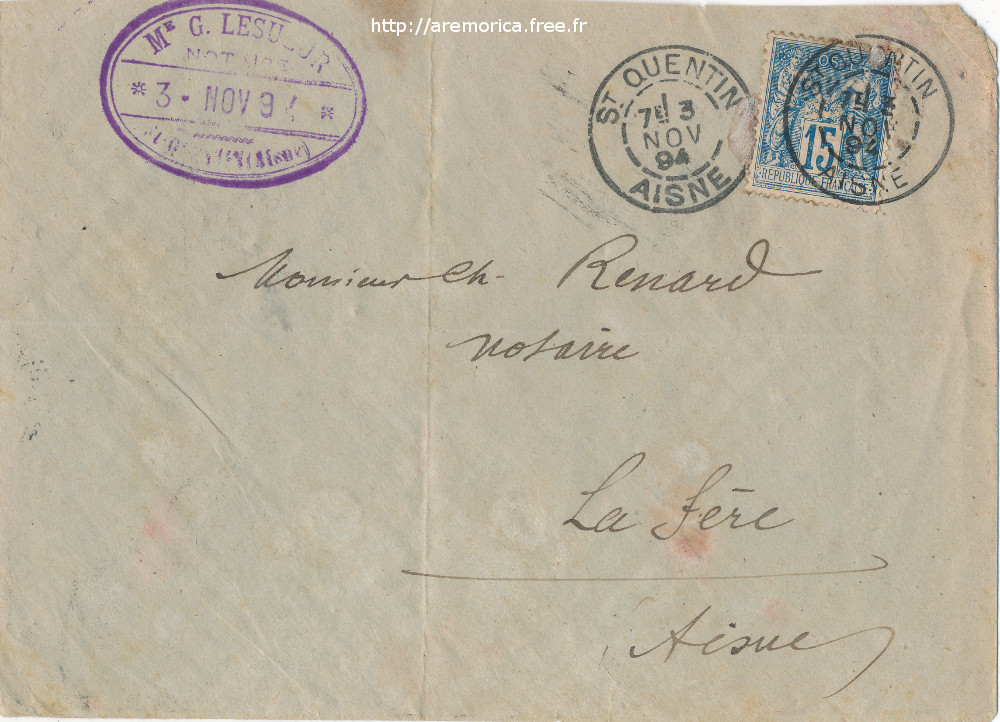 http://aremorica.free.fr
ME G. LESUEUR
NOTAIRE
* 3 - NOV 94 *
St-QUENTIN (Aisne)
ST QUENTIN
7E 3
NOV
94
AISNE
15
REPUBLIQUE FRANCAISE
ST QUENTIN
7E 3
NOV
94
AISNE
Monsieur Ch. Renard
notaire
La Fère
Aisne